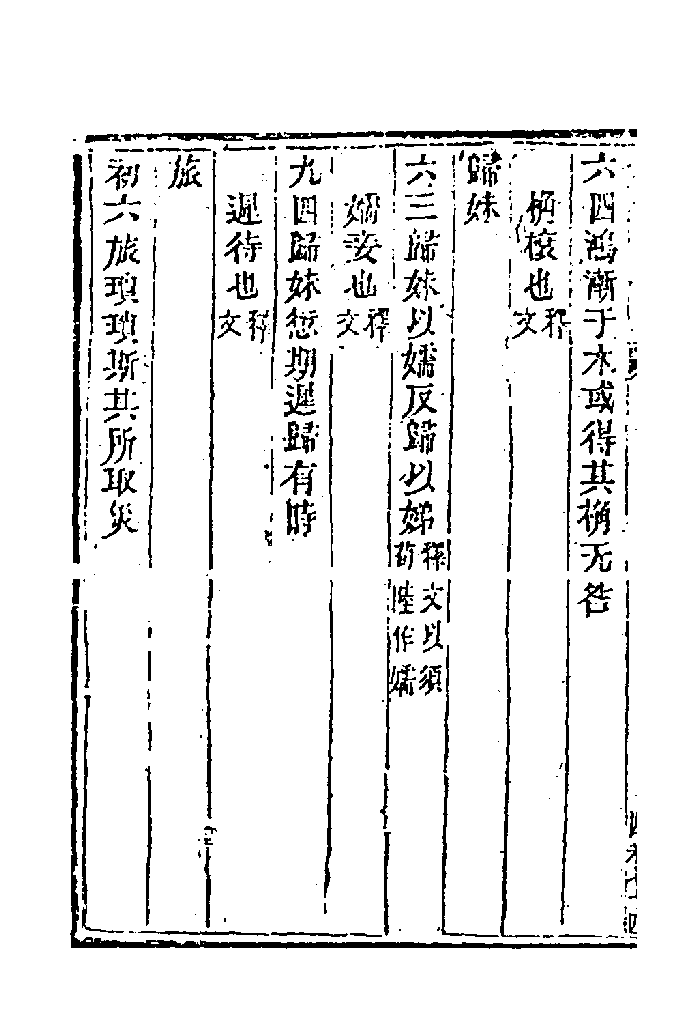 六四鴻漸于木或得其桷无咎
桷榱也釋文
歸妹
六三歸妹以嬬反歸以娣釋文以須荀陸作嬬
嬬妾也釋文
九四歸妹愆期遲歸有時
遲待也釋文
旅
初六旅瑣瑣斯其所取災